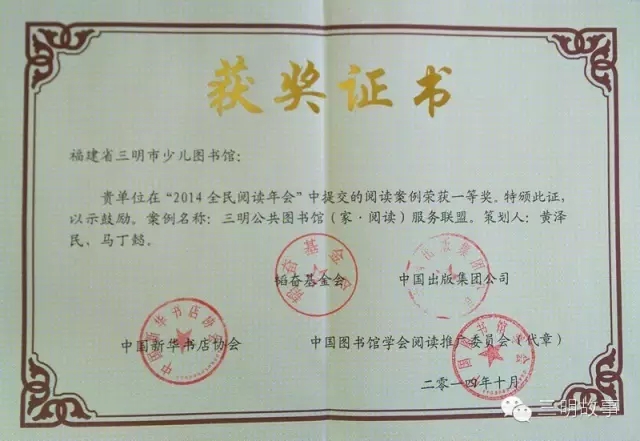 获奖证书
福建省三明市少儿图书馆：
贵单位在“2014 全民阅读年会”中提交的阅读案例荣获一等奖。特颁此证，
以示鼓励。案例名称：三明公共图书馆（家·阅读）服务联盟。策划人：黄泽
民、马丁懿。
韬奋基金会
中国出版集团公司
中国新华书店协会
中国图书馆学会阅读推广委员会（代章）
二〇一四年十月
三明故事